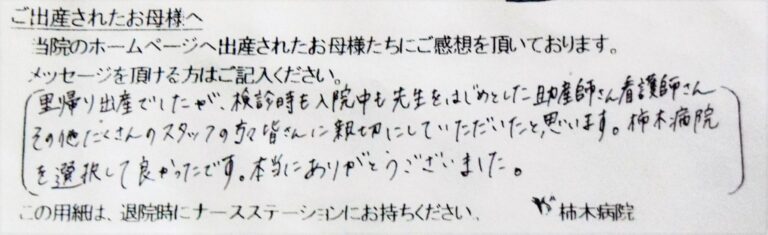 ご出産されたお母様へ
当院のホームページへ出産されたお母様たちにご感想を頂いております。
メッセージを頂ける方はご記入ください。
里帰り出産でしたが、検診時も入院中も先生をはじめとした助産師さん看護師さん
その他たくさんのスタッフの方々皆さんに親切にしていただいたと思います。柿木病院
を選択して良かったです。本当にありがとうございました。
この用紙は、退院時にナースステーションにお持ちください、 柿木病院